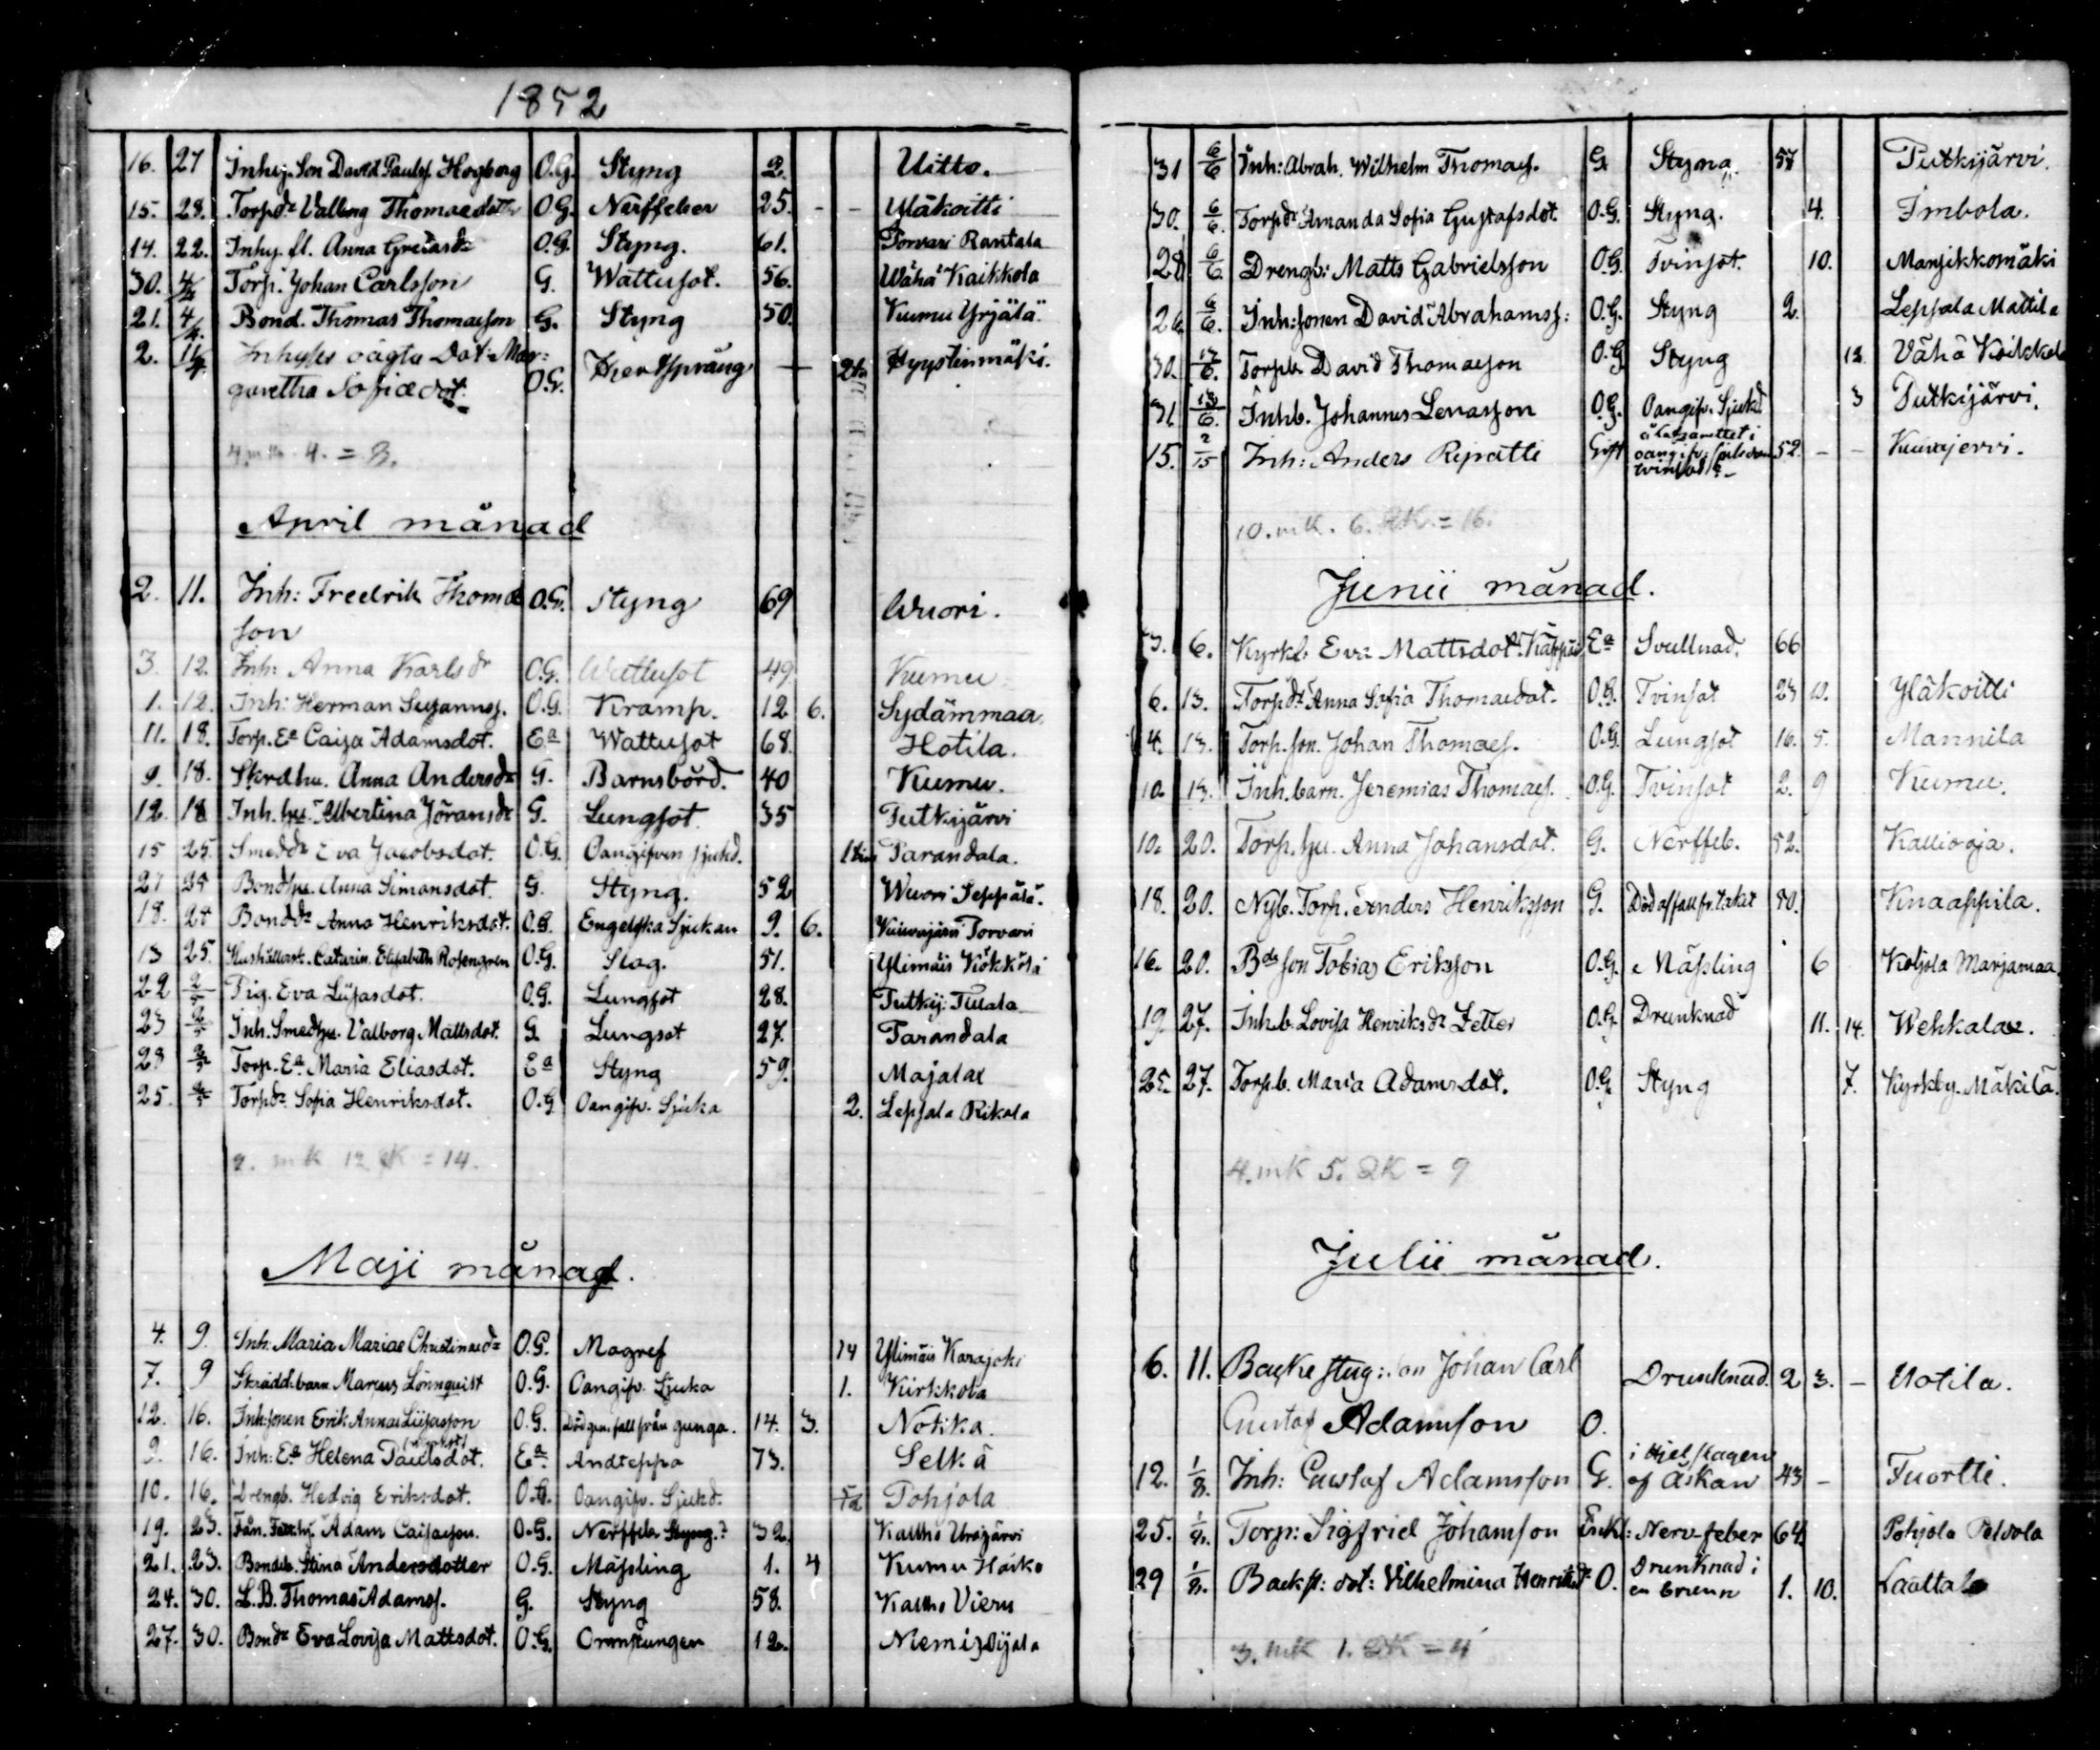 1852
16. 27 Inhy. Son David Paulss. Hogberg O.G. Styng 2. Uitto.
15. 28. Torpdr Valborg Thomaedotr O.G. Närffeber 25. - - Yläkoitti
14. 22. Inhy. fl. Anna Gretasdr O.G. Styng. 61. Torvari Rantala
30. 4/4 Torp. Johan Carlsson G. Wattusot. 56. Wähä Kaikkola
21. 4/4. Bond. Thomas Thomasson G. Styng 50. Kumu Yrjälä.
2. 11/4 Inhyses oägta Dot: Mar:
garetha Sofiædot. O.G. — Hyystinmäki.
4. 4. = 8.
April månad
2. 11. Inh: Fredrik Thomæ O.G. Styng 69 Wuori.
son
3. 12. Inh: Anna Karlsdr O.G. Wattusot 49. Kumu
1. 12. Inh: Herman Susannss. O.G. Kramp. 12 6. Sydämmaa.
11. 18. Torp. Ea Caisa Adamsdot. Ea Wattusot 68. Hotila.
9. 18. Skrdhu. Anna Andersdr G. Barnsbörd. 40 Kumu.
12. 18 Inh. hu. Albertina Jöransdr G. Lungsot 35 Putkijärvi
15 25. Smeddr Eva Jacobsdot. O.G. Oangifven sjukd. Tarandala.
21 25 Bondhu. Anna Simonsdot. G. Styng. 52 Wuori Seppälä.
18. 25 Bonddr Anna Henriksdot. O.G. Engelska Sjukan 9. 6. Kuivajärvi Torvari
13 25. Hushållersk. Catarin. Elisabeth Rosengren O.G. Slag. 51. Ylimäis Kökkölä
22 2/5 Pig. Eva Liisasdot. O.G. Lungsot 28. Putkij: Tuula
23 2/5 Inh. Smedhu. Valborg Mattsdot. G. Lungsot 27. Tarandala
28 2/5 Torp. Ea Maria Eliasdot. Ea Styng 59. Majalax
25. 2/5 Torpdr Sofia Henriksdot. O.G. Oangifv. Sjuka 2. Lepsala Rikala
2. mk 12. QK = 14.
Maji månad.
4. 9. Inh: Maria Mariae Christinædr O.G. Magref 14 Ylimäis Karajoki
7. 9 Skrädd. barn Marcus Lönnquist O.G. Oangifv. Sjuka 1. Kirkkola
12. 16. Inh: sonen Erik Annae Liisasson O.G. Död gen. fall från gunga. 14. 3. Notika.
9. 16. Inh: Ea Helena Paulsdot. Ea Andtäppa 73. Selkä
10. 16. Drengb. Hedvig Eriksdot. O.G. Oangifv. Sjukd. Pohjola
19. 23. Fån. Fatt.hj. Adam Caisasson. O.G. Nerffeb. Styng? 32. Kaltho Urajärvi
21. 23. Bondeb. Stina Andersdotter O.G. Mässling 1. 4 Kumu Haiko
24. 30. L.B. Thomas Adamss. G. Styng 58. Kaltho Vieru
27. 30. Bondr Eva Lovisa Mattsdot. O.G. Ormstungen 12. Niemis Dijala
31 6/6 Inh: Abrah. Wilhelm Thomæs. G. Styng. 57 Putkijärvi.
30. 6/6. Torpdr Amanda Sofia Gustafsdot. O.G. Styng. 4. Imbola.
28 6/6. Drengb: Matts Gabrielsson O.G. Tvinsot. 10. Mansikkomäki
26. 6/6. Inh: sonen David Abrahamss: O.G. Styng 2. Lepsala Mattila
30. 13/6. Torpb. David Thomasson O.G. Styng 12. Vähä Koikkala
31 13/6. Inhb. Johannes Lenasson O.G. Oangifv. Sjukd 3 Putkijärvi.
15. 2/15 Inh: Anders Ripatti Gift 52. - - Kuivajervi.
10. mK. 6. QK. = 16.
Junii månad.
3. 6. Kyrkb. Eva Mattsdot. Käppäi Ea Svullnad. 66
6. 13. Torpdr Anna Sofia Thomaedot. O.G. Tvinsot 23 10. Yläkoitti
4. 13. Torp. son. Johan Thomæs. O.G. Lungsot 16. 5. Mannila
10. 13. Inh. barn. Jeremias Thomæs. O.G. Tvinsot 2. 9 Kumu.
10. 20. Torp. hu. Anna Johansdot. G. Nerffeb. 52. Kalliooja.
18. 20. Nyb. Torp. Anders Henriksson G. Död af fall fr. taket 80. Knaappila.
16. 20. Bds son Tobias Eriksson O.G. Mässling 6 Koljola Marjamaa
19. 27. Inh.b. Lovisa Henriksdr Zetter O.G. Drunknad 11. 14. Wehkalax.
25. 27. Torpb. Maria Adamsdot. O.G. Styng 7. Kyrkby. Mäkilä.
4. mK 5. QK = 9
Julii månad.
6. 11. Backestug: son Johan Carl Drunknad. 2 3. - Uotila.
Gustaf Adamsson O.
12. 1/8. Inh: Gustaf Adamsson G. i Hjelslagen af Åskan 43 - Tuortti.
25. 1/8. Torp: Sigfried Johansson Enkl: Nerv-feber 64 Pohjola Peldola
29 1/8. Backst: dot: Vilhelmina Henriksdr O. Drunknad i en brunn 1. 10. Laattala
3. mK 1. QK = 4